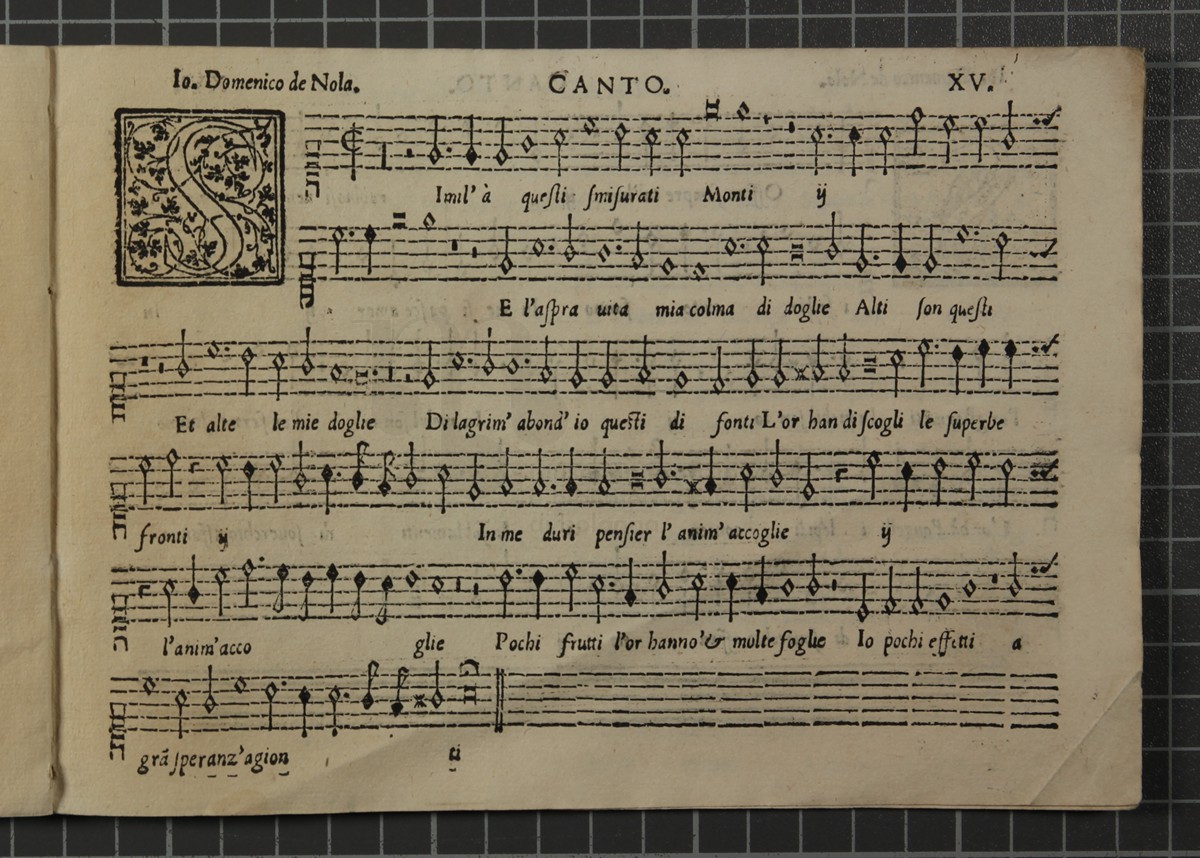 Io. Domenico de Nola. CANTO. XV.
S Imil' à questi smisurati Monti ij
E l'aspra uita mia colma di doglie Alti son questi
Et alte le mie doglie Di lagrim' abond' io questi di fonti L'or han di scogli le superbe
fronti ij In me duri pensier l' anim' accoglie ij
l'anim'acco glie Pochi frutti l'or hanno'& molte foglie Io pochi effetti a
grã speranz'agion ti